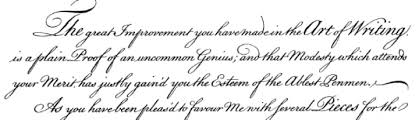 The great Improvement you have made in the Art of Writing
is a plain Proof of an uncommon Genius; and that Modesty which attends
your Merit has justly gain'd you the Esteem of the Ablest Penmen.
As you have been pleas'd to favour Me with several Pieces for the